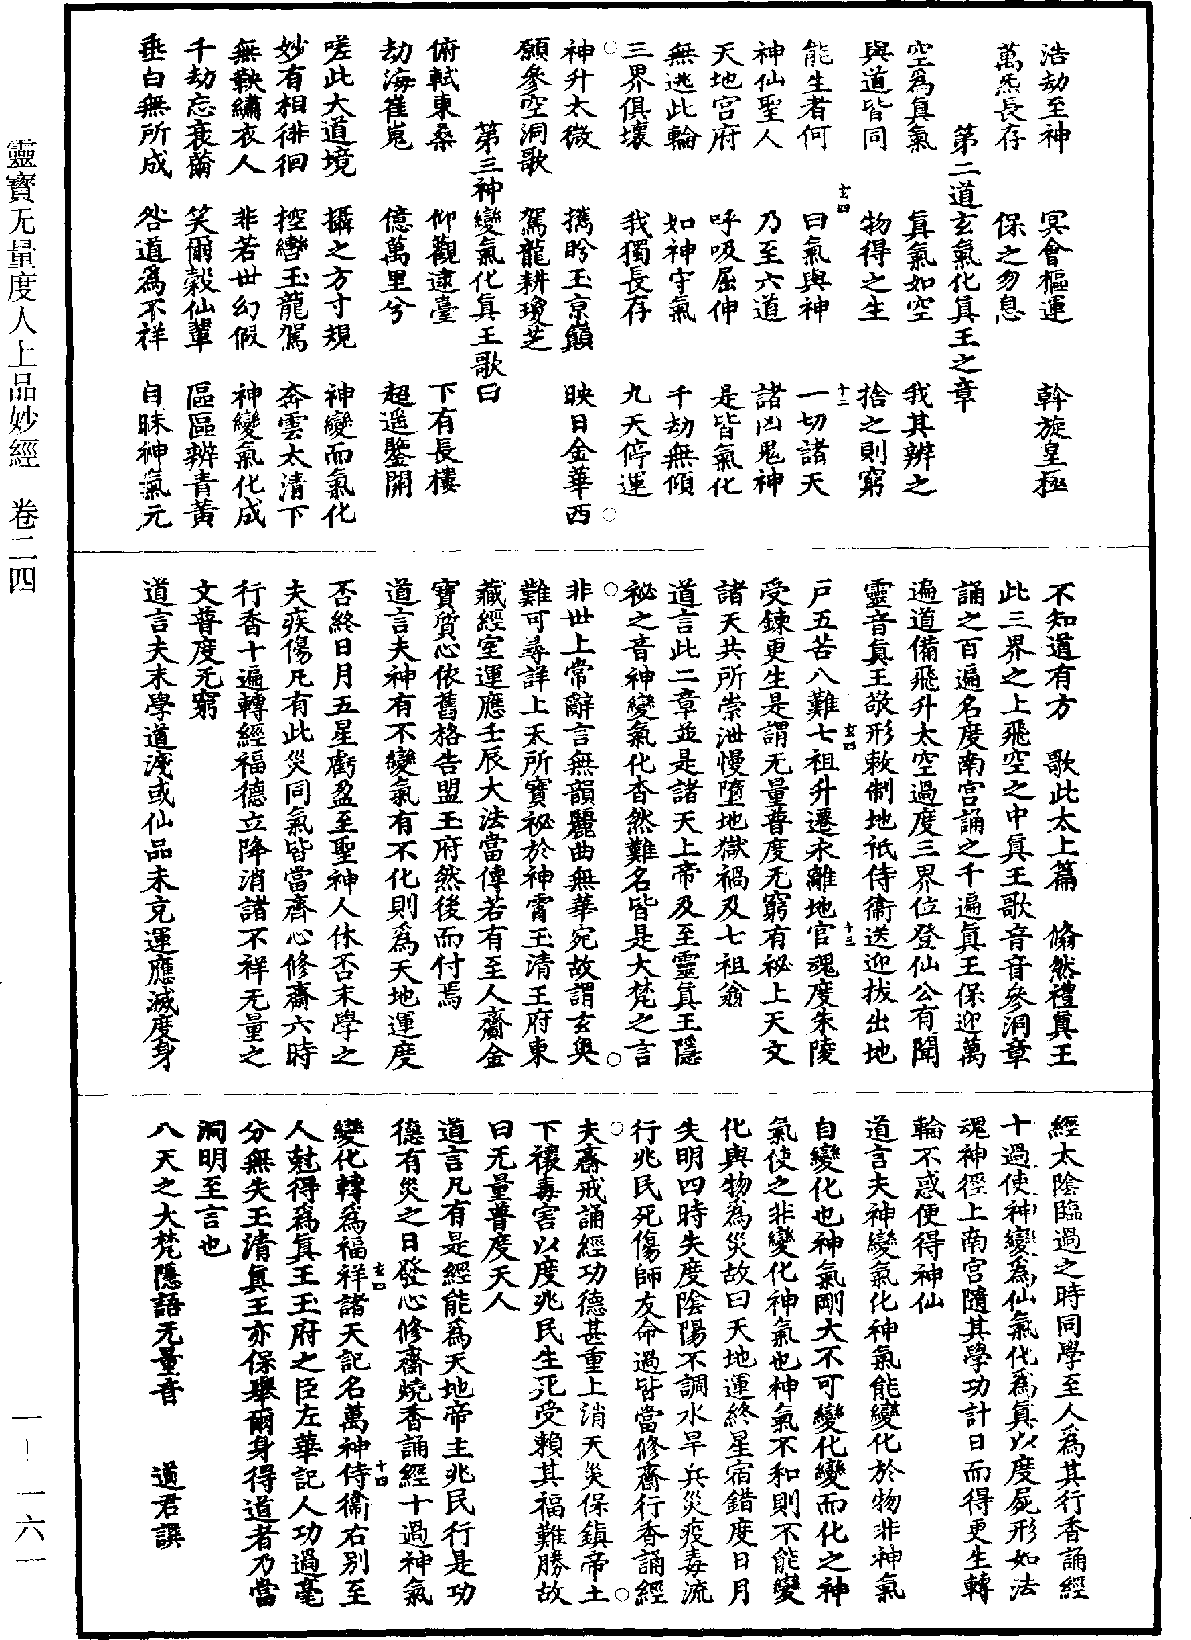 浩劫至神　冥會樞運　斡旋皇極
萬炁長存　保之勿息
第二道玄氣化真王之章
空為真氣　真氣如空　我其辨之
與道皆同　物得之生　捨之則窮
能生者何　曰氣與神　一切諸天
神仙聖人　乃至六道　諸凶鬼神
天地宮府　呼吸屈伸　是皆氣化
無逃此輪　如神守氣　千劫無傾
三界俱壞　我獨長存　九天停運
神升太微　攜盻玉京巔　映日金華西
願參空洞歌　駕龍耕瓊芝
第三神變氣化真王歌曰
俯軾東桑　仰觀逮臺　下有長樓
劫海崔嵬　億萬里兮　超遥鑒開
嗟此大道境　攝之方寸規　神變而氣化
妙有相徘徊　控轡玉龍駕　奔雲太清下
無鞅繡衣人　非若世幻假　神變氣化成
千劫忘衰薾　笑爾穀仙輩　區區辨青黃
垂白無所成　咎道為不祥　自昧神氣元
玄四
十二
不知道有方　歌此太上篇　翛然禮真王
此三界之上飛空之中真王歌音音參洞章
誦之百遍名度南宮誦之千遍真王保迎萬
遍道備飛升太空過度三界位登仙公有聞
靈音真王敬形敕制地祇侍衛送迎拔出地
戶五苦八難七祖升遷永離地官魂度朱陵
受鍊更生是謂无量普度无窮有祕上天文
諸天共所崇泄慢墮地獄禍及七祖翁
道言此二章並是諸天上帝及至靈真王隱
祕之音神變氣化杳然難名皆是大梵之言
非世上常辭言無韻麗曲無華宛故謂玄奥
難可尋詳上天所寶祕於神霄玉清王府東
藏經室運應壬辰大法當傳若有至人齎金
寶質心依舊格告盟玉府然後而付焉
道言夫神有不變氣有不化則為天地運度
否終日月五星虧盈至聖神人休否末學之
夫疾傷凡有此災同氣皆當齊心修齋六時
行香十遍轉經福德立降消諸不祥无量之
文普度无窮
道言夫末學道淺或仙品未克運應滅度身
玄四
十三
經太陰臨過之時同學至人為其行香誦經
十過使神變為仙氣化為真以度屍形如法
魂神徑上南宮隨其學功計日而得更生轉
輪不惑便得神仙
道言夫神變氣化神氣能變化於物非神氣
自變化也神氣剛大不可變化變而化之神
氣使之非變化神氣也神氣不和則不能變
化與物為災故曰天地運終星宿錯度日月
失明四時失度陰陽不調水旱兵災疫毒流
行兆民死傷師友命過皆當修齋行香誦經
夫齋戒誦經功德甚重上消天災保鎮帝土
下禳毒害以度兆民生死受賴其福難勝故
曰无量普度天人
道言凡有是經能為天地帝主兆民行是功
德有災之日發心修齋燒香誦經十過神氣
變化轉為福祥諸天記名萬神侍衛右別至
人尅得為真王玉府之臣左華記人功過毫
分無失玉清真王亦保舉爾身得道者乃當
洞明至言也
八天之大梵隱語无量音　道君譔
玄四
十四
靈寶无量度人上品妙經　卷二四
一－一六一